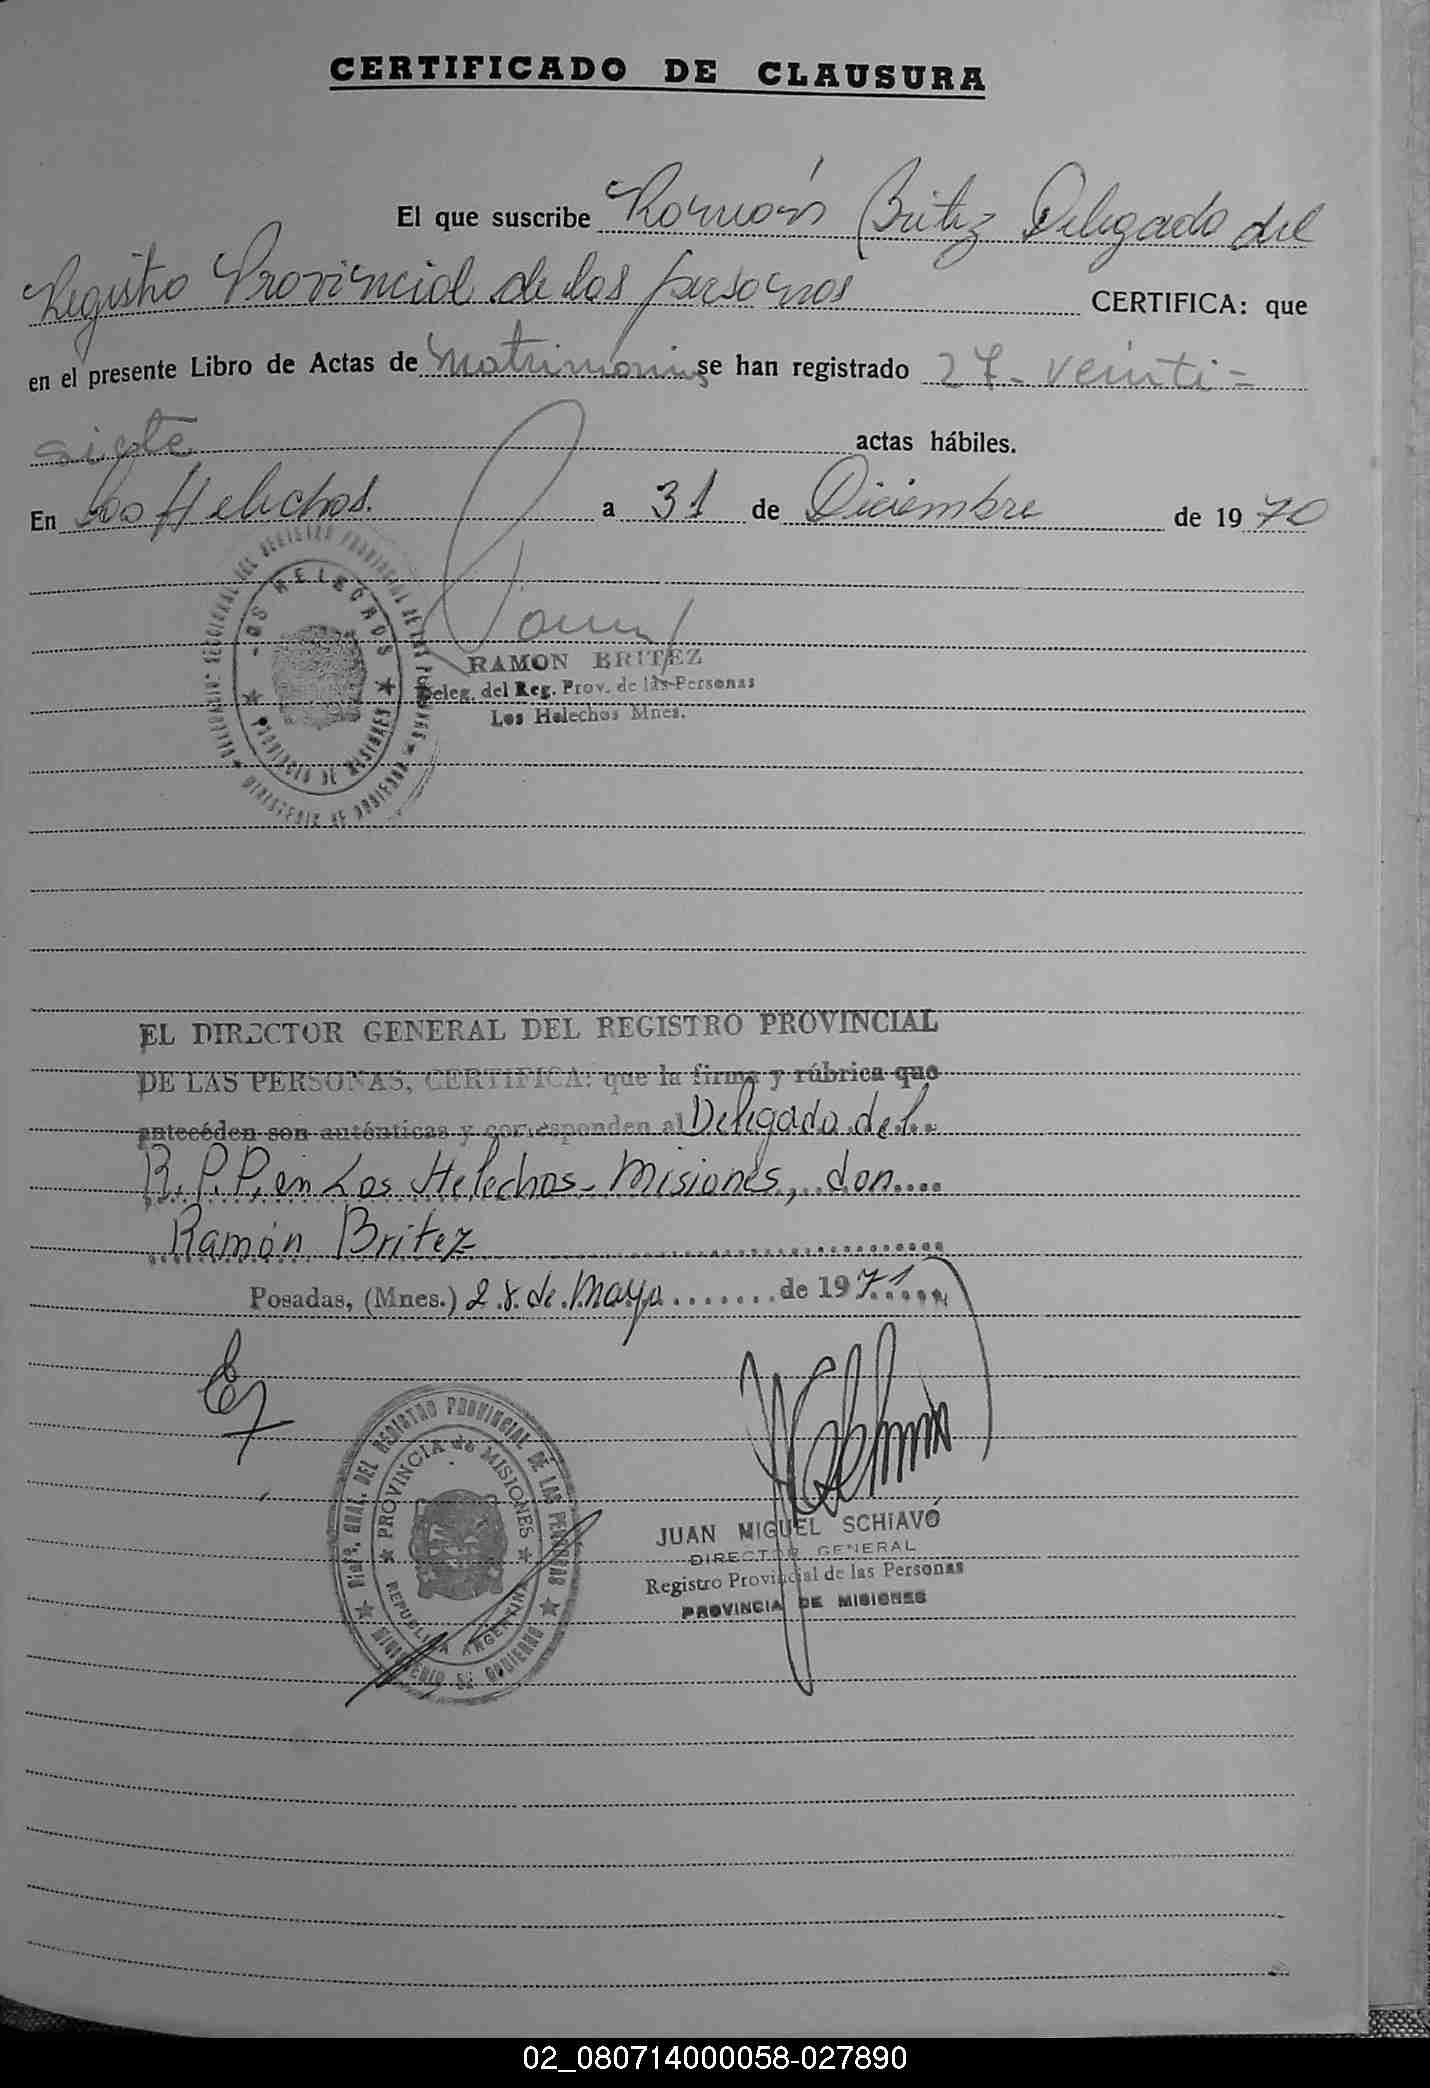 CERTIFICADO DE CLAUSURA
El que suscribe Ramón Britez Delegado del
Registro Provincial de las personas CERTIFICA: que
en el presente Libro de Actas de Matrimonios se han registrado 27- veinti-
siete actas hábiles.
En Los Helechos. a 31 de Diciembre de 1970
DELEGACION SECCIONAL DEL REGISTRO PROVINCIAL DE LAS PERSONAS
LOS HELECHOS
PROVINCIA DE MISIONES
MINISTERIO DE GOBIERNO
RAMON BRITEZ
Deleg. del Reg. Prov. de las Personas
Los Helechos Mnes.
EL DIRECTOR GENERAL DEL REGISTRO PROVINCIAL
DE LAS PERSONAS, CERTIFICA: que la firma y rúbrica que
antecéden son auténticas y corresponden al Delegado del
R.P.P. en Los Helechos- Misiones, don
Ramón Britez
Posadas, (Mnes.) 28 de Mayo de 1971
Dion. GRAL. DEL REGISTRO PROVINCIAL DE LAS PERSONAS
PROVINCIA de MISIONES
REPUBLICA ARGENTINA
MINISTERIO DE GOBIERNO
JUAN MIGUEL SCHIAVÓ
DIRECTOR GENERAL
Registro Provincial de las Personas
PROVINCIA DE MISIONES
02_080714000058-027890